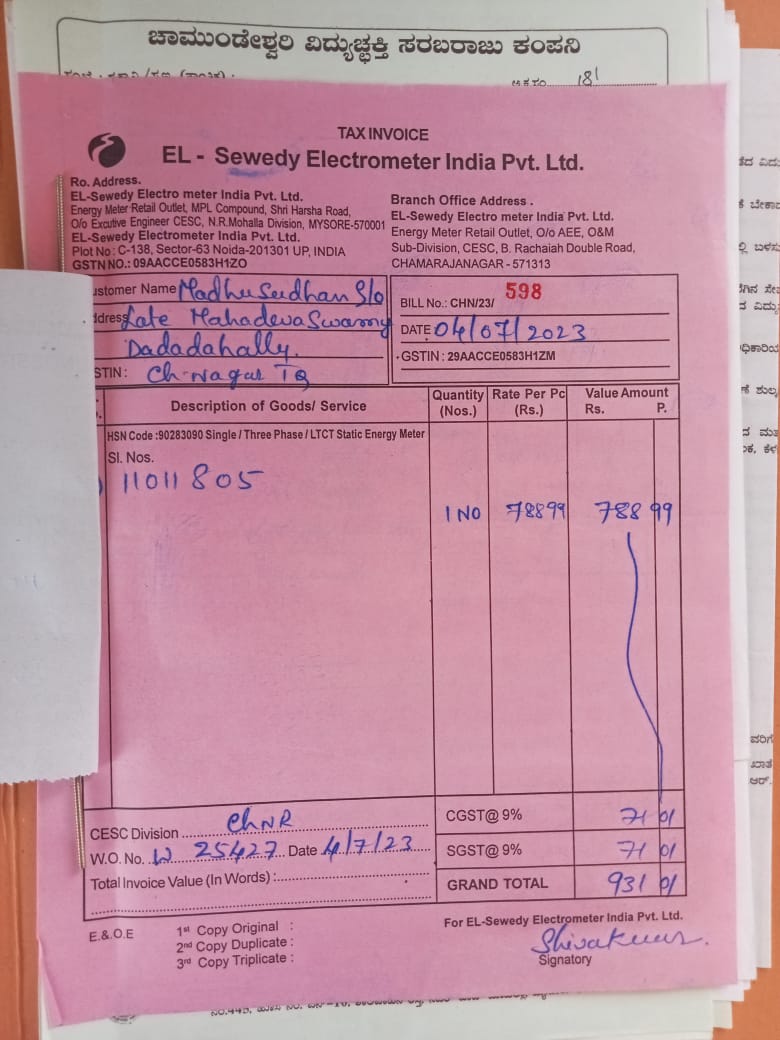 ಚಾಮುಂಡೇಶ್ವರಿ ವಿದ್ಯುಚ್ಛಕ್ತಿ ಸರಬರಾಜು ಕಂಪನಿ
181
TAX INVOICE
EL - Sewedy Electrometer India Pvt. Ltd.
Ro. Address.
EL-Sewedy Electro meter India Pvt. Ltd.
Energy Meter Retail Outlet, MPL Compound, Shri Harsha Road,
O/o Excutive Engineer CESC, N.R.Mohalla Division, MYSORE-570001
EL-Sewedy Electrometer India Pvt. Ltd.
Plot No : C-138, Sector-63 Noida-201301 UP, INDIA
GSTN NO.: 09AACCE0583H1ZO
Branch Office Address .
EL-Sewedy Electro meter India Pvt. Ltd.
Energy Meter Retail Outlet, O/o AEE, O&M
Sub-Division, CESC, B. Rachaiah Double Road,
CHAMARAJANAGAR - 571313
ustomer Name Madhusudhan S/o
ddress Late Mahadevaswamy
Dadadahally.
STIN : Ch-nagar TQ
BILL No.: CHN/23/ 598
DATE 04/07/2023
GSTIN : 29AACCE0583H1ZM
Description of Goods/ Service Quantity (Nos.) Rate Per Pc (Rs.) Value Amount Rs. P.
HSN Code :90283090 Single / Three Phase / LTCT Static Energy Meter
Sl. Nos.
11011805
1 NO 788 99 788 99
CESC Division ChNR
W.O. No. W 25427 Date 4/7/23
Total Invoice Value (In Words) :
CGST@ 9% 71 01
SGST@ 9% 71 01
GRAND TOTAL 931 01
E.& O.E
1st Copy Original :
2nd Copy Duplicate :
3rd Copy Triplicate :
For EL-Sewedy Electrometer India Pvt. Ltd.
Shivakumar.
Signatory